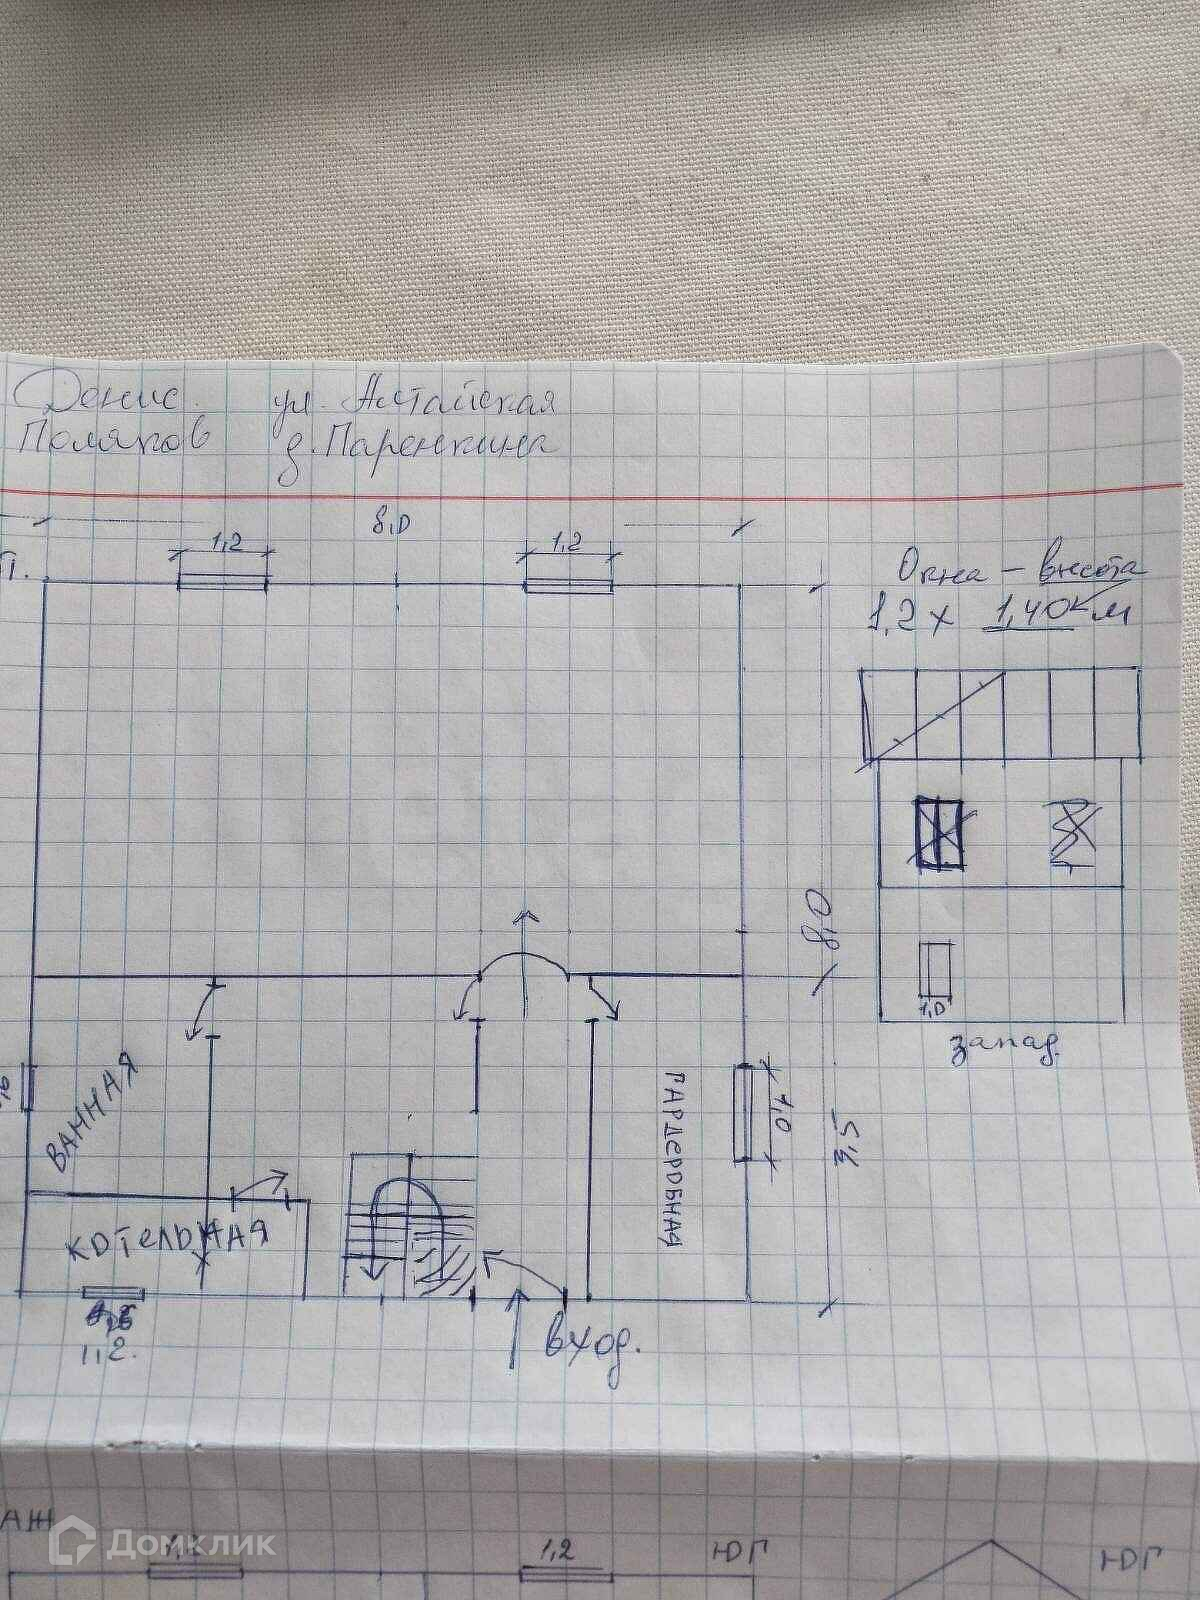 Денис. ул. Алтайская
Поляков д. Паренкина
8,0
1,2
1,2
П.
Окна - высота
1,2 х 1,40 км
8,0
1,0
запад.
ВАННАЯ
ГАРДЕРОБНАЯ
1,0
3,5
КОТЕЛЬНАЯ
1,2.
вход.
АЖ
Домклик
1,2
ЮГ
ЮГ